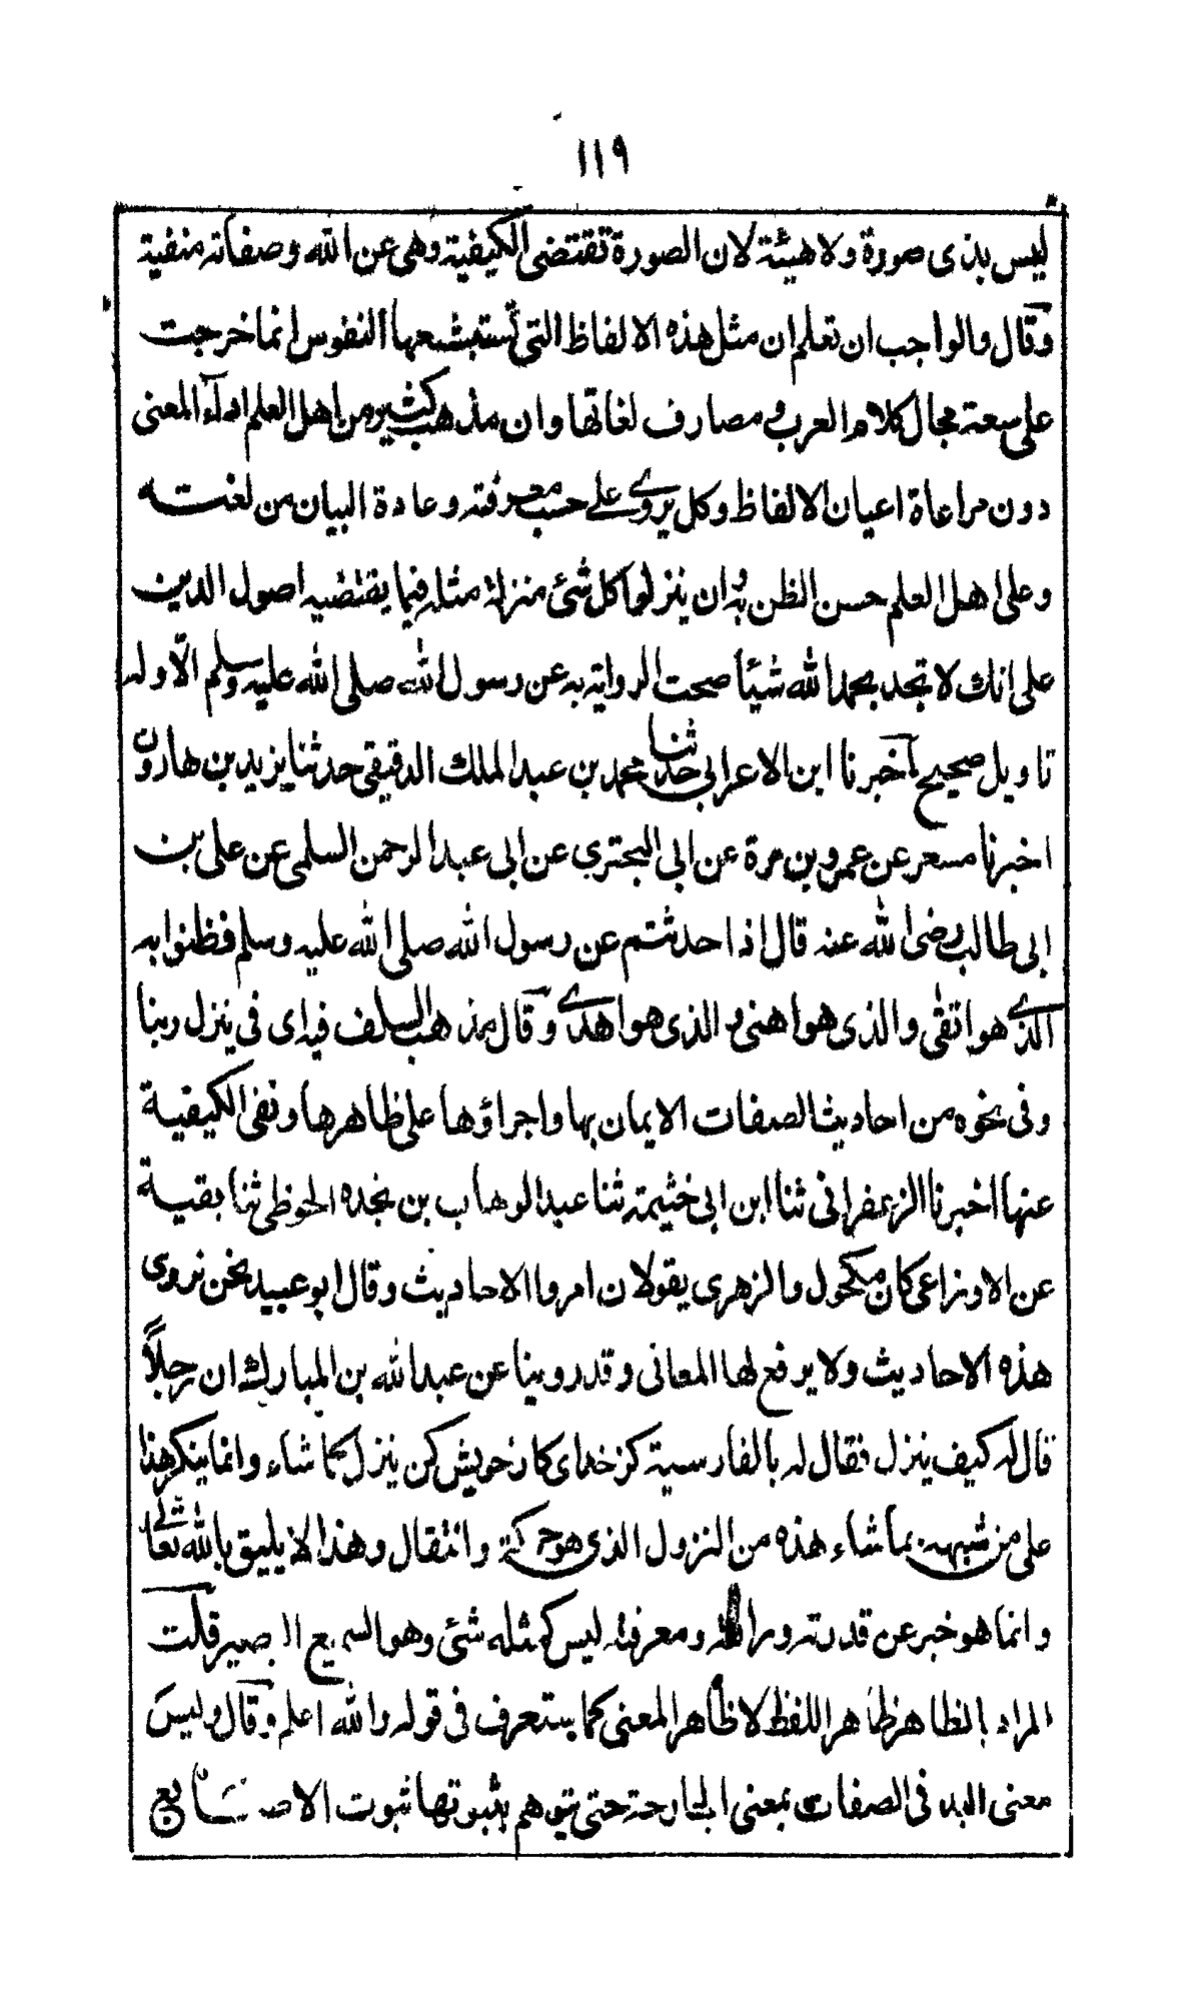 ١١٩
ليس بذى صورة ولا هيئة لان الصورة تقتضى الكيفية وهى عن الله وصفاته منفية
وقال والواجب ان تعلم ان مثل هذه الالفاظ التى تستبشعها النفوس انما خرجت
على سعة مجال كلام العرب ومصارف لغاتها وان مذهب كثير من اهل العلم اداء المعنى
دون مراعاة اعيان الالفاظ وكل يروى على حسب معرفته وعادة البيان من لغته
وعلى اهل العلم حسن الظن به وان ينزلوا كل شئ منزلة مثله فيما يقتضيه اصول الدين
على انك لا تجد بحمد الله شيئا صحت الرواية به عن رسول الله صلى الله عليه وسلم الّا وله
تاويل صحيح اخبرنا ابن الاعرابى حدثنا محمد بن عبد الملك الدقيقى حدثنا يزيد بن هارون
اخبرنا مسعر عن عمرو بن مرة عن ابى البحترى عن ابى عبد الرحمن السلمى عن على بن
ابى طالب رضى الله عنه قال اذا حدثتم عن رسول الله صلى الله عليه وسلم فظنوا به
الذى هو اتقى والذى هو اهنى والذى هو اهدى وقال مذهب السلف فيه اى فى ينزل ربنا
وفى نحوه من احاديث الصفات الايمان بها واجراؤها على ظاهرها ونفى الكيفية
عنها اخبرنا الزعفرانى ثنا ابن ابى خثيمة ثنا عبد الوهاب بن نجده الحوظى ثنا بقية
عن الاوزاعى كان مكحول والزهرى يقولان امروا الاحاديث وقال ابو عبيد نحن نروى
هذه الاحاديث ولا يرفع لها المعانى وقد روينا عن عبد الله بن المبارك ان رجلاً
قال له كيف ينزل فقال له بالفارسية كز خداى كار خويش كن ينزل كما شاء وانما ينكر هذا
على من شبهه بما شاء هذه من النزول الذى هو حركة وانتقال وهذا لا يليق بالله تعالى
وانما هو خبر عن قدرته ورافته ومعرفته ليس كمثله شئ وهو السميع البصير قلت
المراد بالظاهر ظاهر اللفظ لا ظاهر المعنى كما يتعرف فى قوله والله اعلم وقال وليس
معنى اليد فى الصفات بمعنى الجارحة حتى يتوهم بثبوتها ثبوت الاصابع